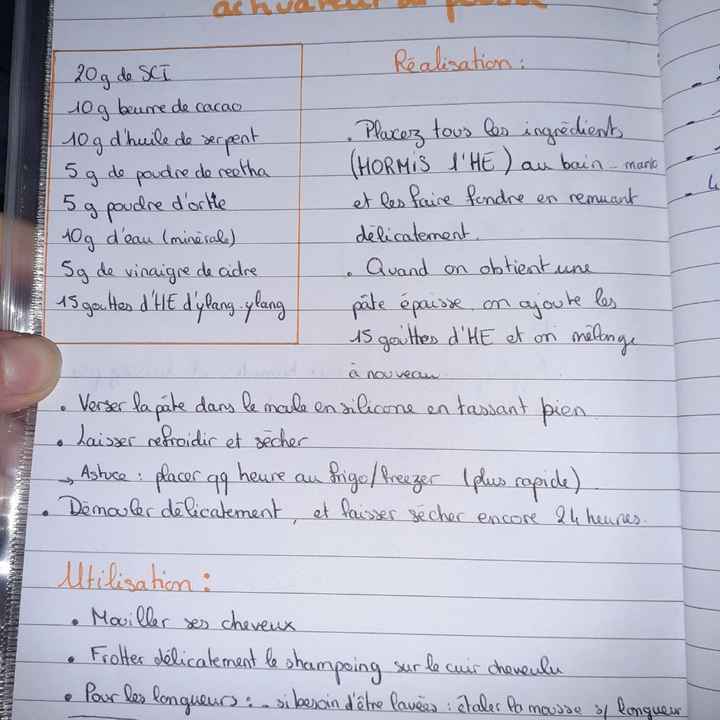 activateur de pousse
20g de SCI
10g beurre de cacao
10g d'huile de serpent
5g de poudre de reetha
5g poudre d'ortie
10g d'eau (minérale)
5g de vinaigre de cidre
15 gouttes d'HE d'ylang-ylang
Réalisation :
. Placez tous les ingrédients
(HORMIS l'HE) au bain-marie
et les faire fondre en remuant
délicatement.
. Quand on obtient une
pâte épaisse, on ajoute les
15 gouttes d'HE et on mélange
à nouveau
. Verser la pâte dans le moule en silicone en tassant bien.
. Laisser refroidir et sécher
→ Astuce : placer qq heure au frigo/freezer (plus rapide)
. Démouler délicatement, et laisser sécher encore 24 heures.
Utilisation :
. Mouiller ses cheveux
. Frotter délicatement le shampoing sur le cuir chevelu
. Pour les longueurs : - si besoin d'être lavées : étaler la mousse s/ longueur